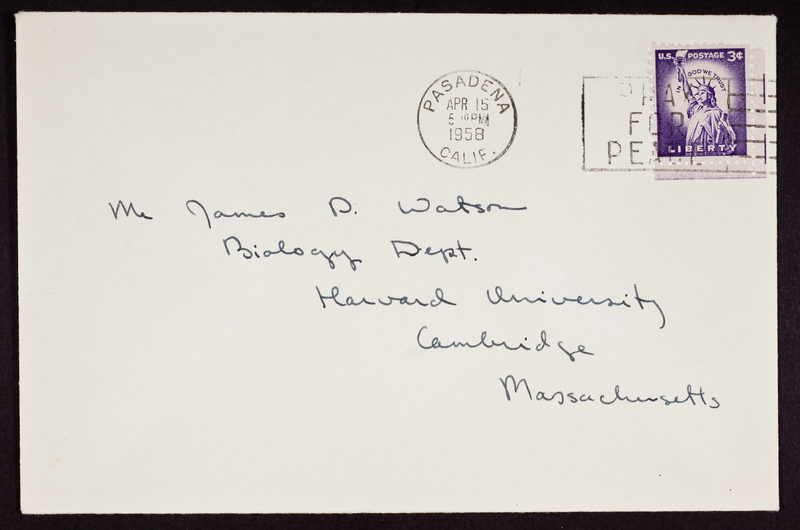 U.S. POSTAGE 3¢
IN GOD WE TRUST
LIBERTY
PASADENA
APR 15
PM
1958
CALIF.
PRAY
FOR
PEACE
Mr James D. Watson
Biology Dept.
Harvard University
Cambridge
Massachusetts